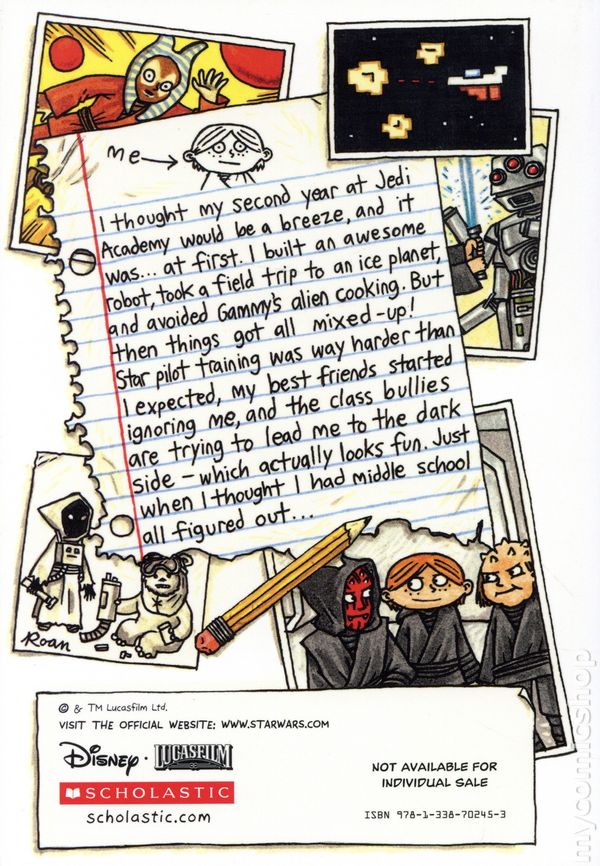 me
I thought my second year at Jedi
Academy would be a breeze, and it
was... at first. I built an awesome
robot, took a field trip to an ice planet,
and avoided Gammy's alien cooking. But
then things got all mixed-up!
Star pilot training was way harder than
I expected, my best friends started
ignoring me, and the class bullies
are trying to lead me to the dark
side - which actually looks fun. Just
when I thought I had middle school
all figured out...
Roan
© & TM Lucasfilm Ltd.
VISIT THE OFFICIAL WEBSITE: WWW.STARWARS.COM
Disney · LUCASFILM
SCHOLASTIC
scholastic.com
NOT AVAILABLE FOR
INDIVIDUAL SALE
ISBN 978-1-338-70245-3
mycomicshop